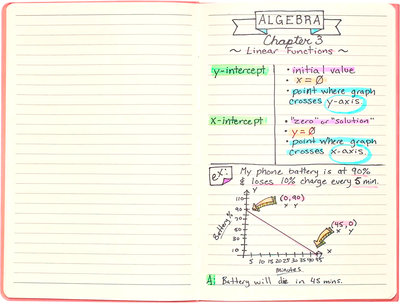 ALGEBRA
Chapter 3
~ Linear Functions ~
y-intercept
• initial value
• x = Ø
• point where graph
crosses y-axis.
x-intercept
• "zero" or "solution"
• y = Ø
• point where graph
crosses x-axis.
ex:
My phone battery is at 90%
& loses 10% charge every 5 min.
y
110
90
70
50
30
10
Battery %
(0,90)
x y
(45,0)
x y
x
5 10 15 20 25 30 35 40 45
minutes
A: Battery will die in 45 mins.